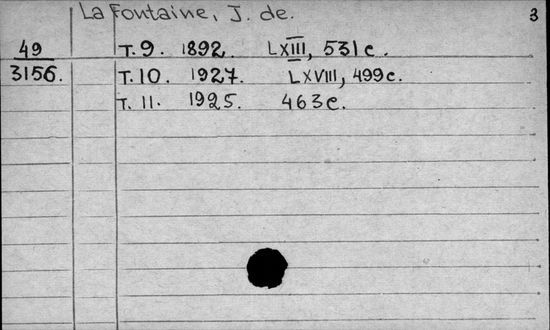 La Fontaine, J. de.
3
49 T. 9. 1892. LXIII, 531 c.
3156. T. 10. 1927. LXVIII, 499 c.
T. 11. 1925. 463 c.